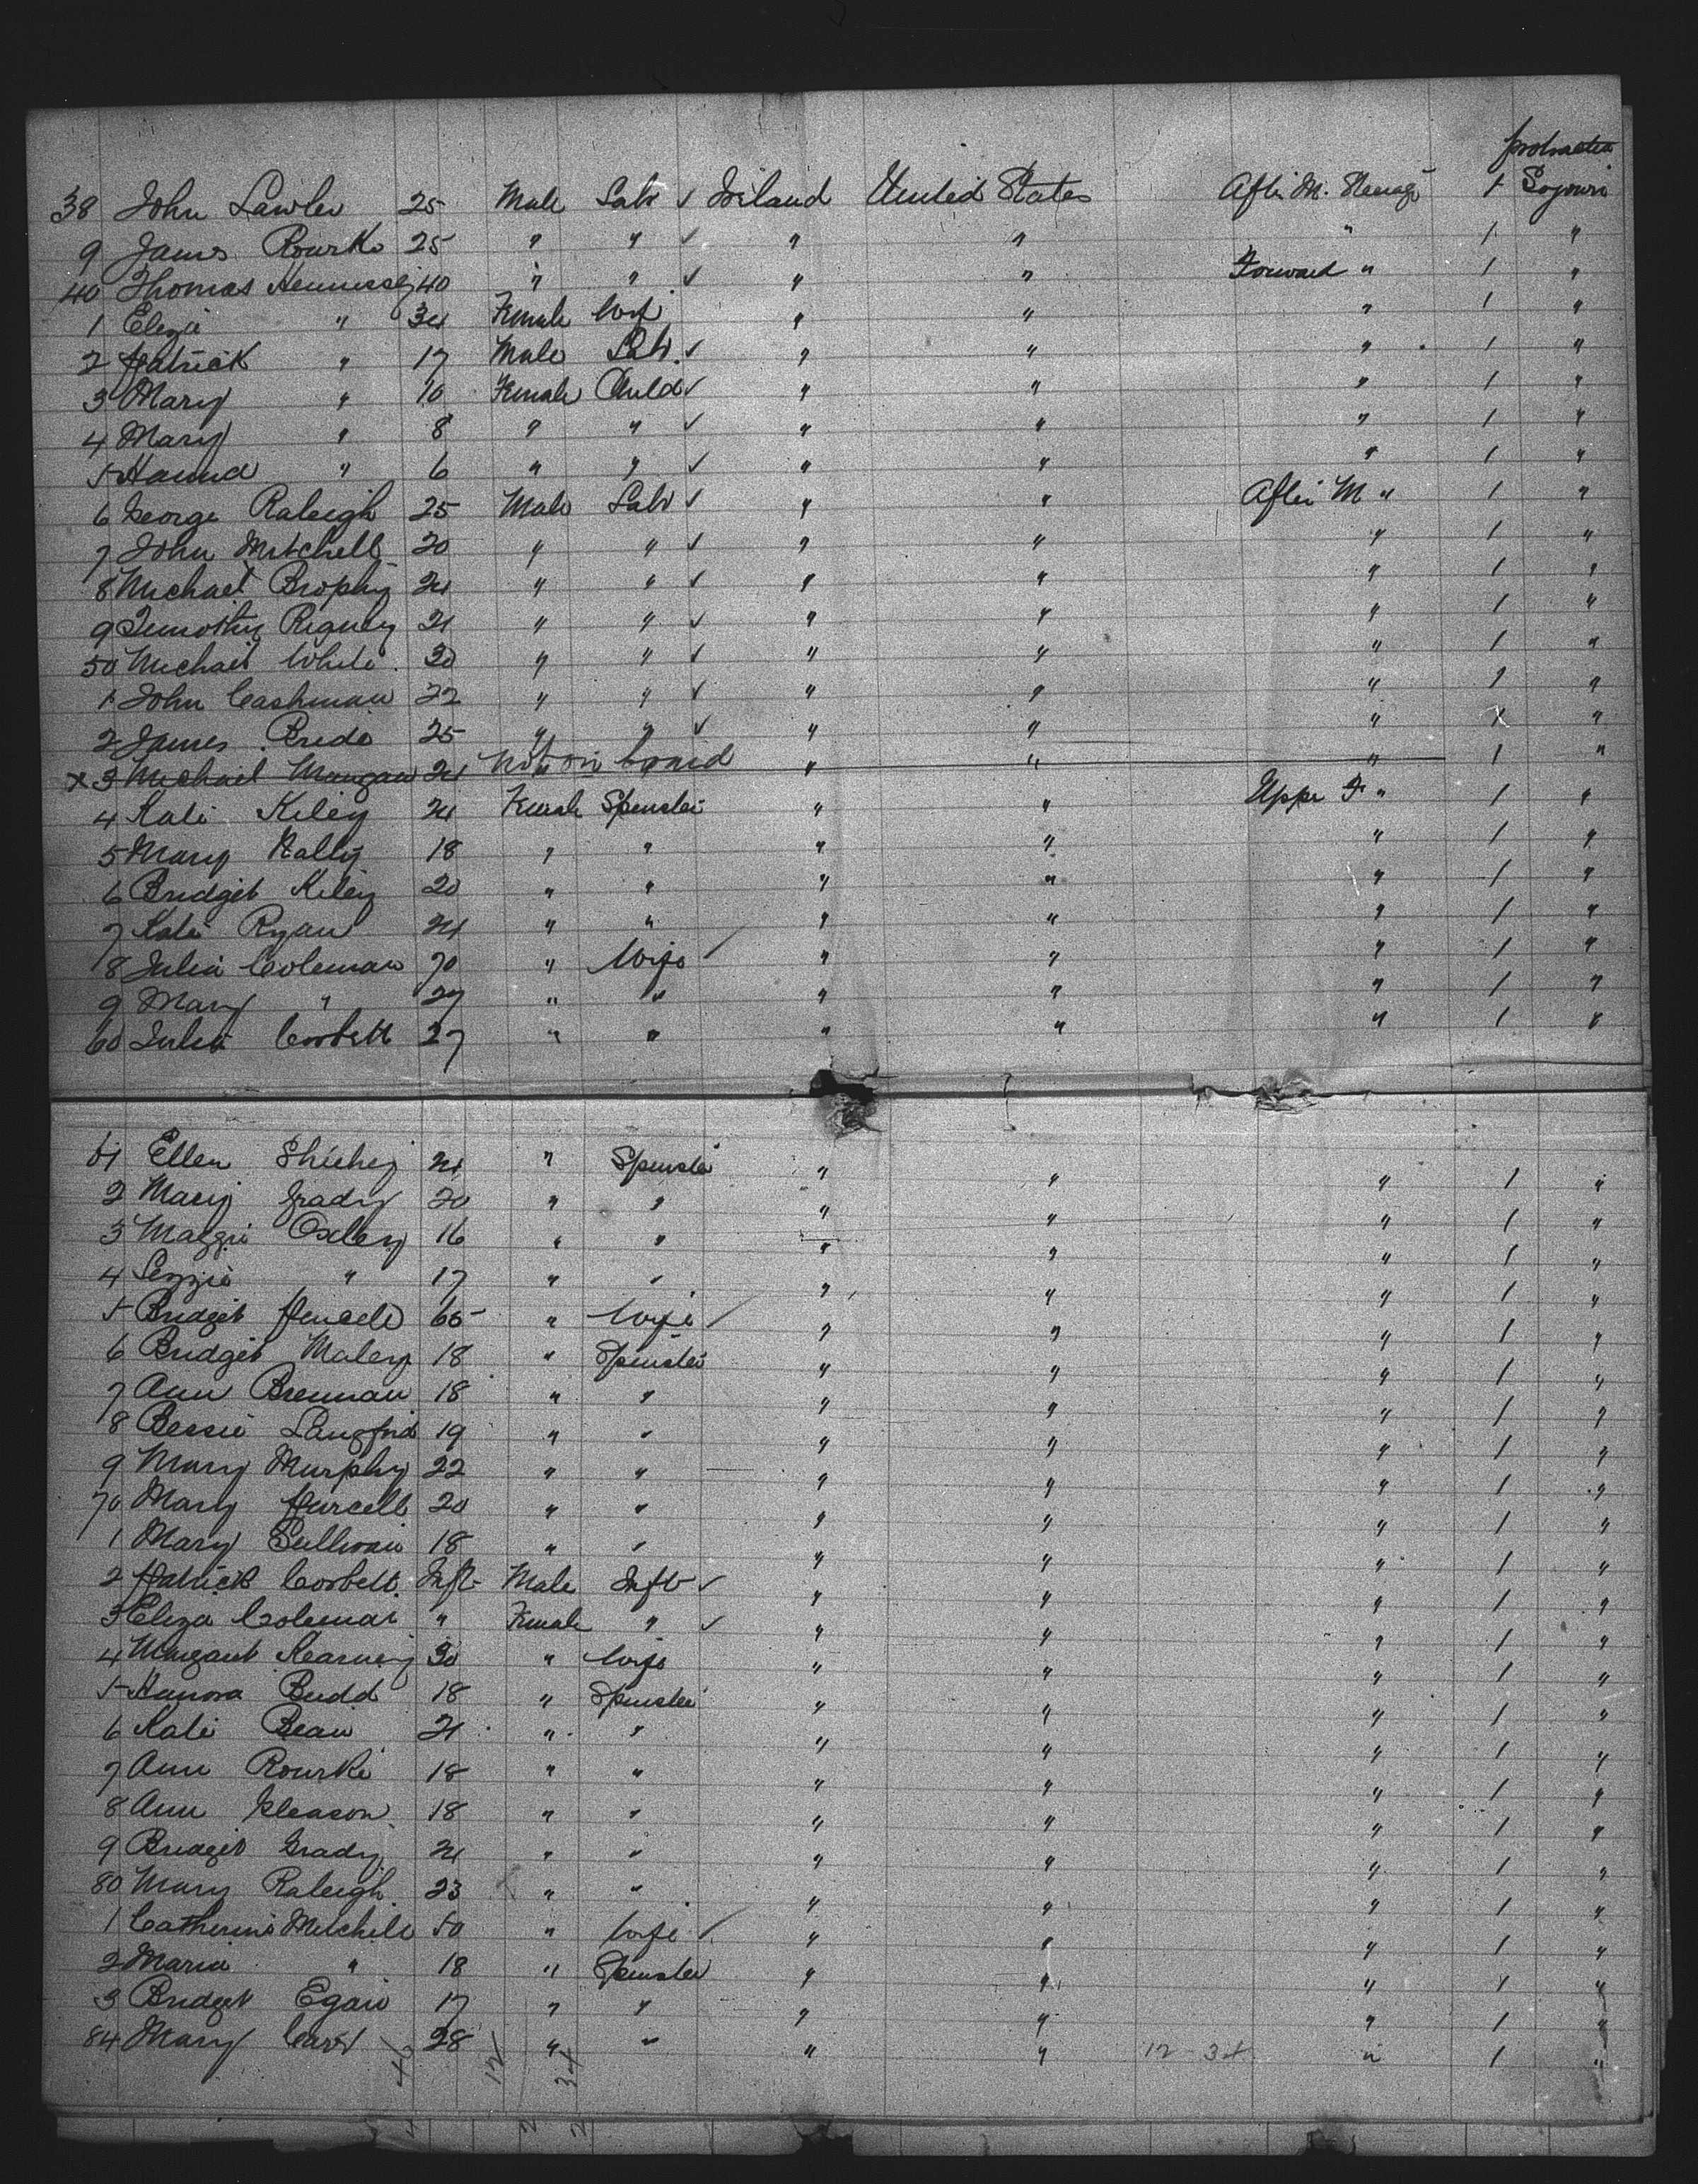 protracted
38 John Lawler 25 Male Labr ✓ Ireland United States After M. Steerage 1 Sojourn
9 James Rourke 25 " " ✓ " " " 1 "
40 Thomas Hennessy 40 " " ✓ " " Forward " 1 "
1 Eliza " 34 Female Wife " " " 1 "
2 Patrick " 17 Male Labr. ✓ " " " 1 "
3 Mary " 10 Female Child ✓ " " " 1 "
4 Mary " 8 " " ✓ " " " 1 "
5 Hanna " 6 " " ✓ " " " 1 "
6 George Raleigh 25 Male Labr ✓ " " After M " 1 "
7 John Mitchell 20 " " ✓ " " " 1 "
8 Michael Brophy 24 " " ✓ " " " 1 "
9 Timothy Rigney 21 " " ✓ " " " 1 "
50 Michael White 30 " " ✓ " " " 1 "
1 John Cashman 22 " " ✓ " " " 1 "
2 James Brede 25 " " ✓ " " " 1 "
x 3 Michael Mangan 24 Not on board " " " 1 "
4 Kate Kiley 24 Female Spinster " " Upper F " 1 "
5 Mary Nally 18 " " " " " 1 "
6 Bridget Kiley 20 " " " " " 1 "
7 Kate Ryan 24 " " " " " 1 "
8 Julia Coleman 70 " Wife ✓ " " " 1 "
9 Mary " 27 " " " " " 1 "
60 Julia Corbett 27 " " " " " 1 "
61 Ellen Shiehy 24 " Spinster " " " 1 "
2 Mary Grady 20 " " " " " 1 "
3 Maggie Oxley 16 " " " " " 1 "
4 Lizzie " 17 " " " " " 1 "
5 Bridget 65 " Wife ✓ " " " 1 "
6 Bridget Maley 18 " Spinster " " " 1 "
7 Ann Brennan 18 " " " " " 1 "
8 Bessie Langford 19 " " " " " 1 "
9 Mary Murphy 22 " " " " " 1 "
70 Mary Purcell 20 " " " " " 1 "
1 Mary Sullivan 18 " " " " " 1 "
2 Patrick Corbett Inft Male Inft ✓ " " " 1 "
3 Eliza Coleman " Female " ✓ " " " 1 "
4 Margaret Kearney 30 " Wife " " " 1 "
5 Hanora Budd 18 " Spinster " " " 1 "
6 Kate Bean 21 " " " " " 1 "
7 Ann Rourke 18 " " " " " 1 "
8 Ann Gleason 18 " " " " " 1 "
9 Bridget Grady 21 " " " " " 1 "
80 Mary Raleigh 23 " " " " " 1 "
1 Catherine Mitchell 50 " Wife ✓ " " " 1 "
2 Maria " 18 " Spinster " " " 1 "
3 Bridget Egan 17 " " " " " 1 "
84 Mary Carr 28 " " " " 12 34 " 1 "
46 12 34